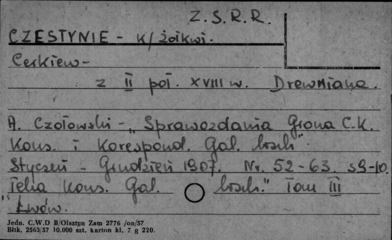 Z.S.R.R.
CZESTYNIE - K/żółkwi.
Cerkiew -
z II poł. XVIII w. Drewniana.
A. Czołowski - "Sprawozdania Grona C.K.
Kons. i Korespond. Gal.
Styczeń - Grudzień 1907. Nr. 52-63 s. 9-10.
Teka Kons. Gal. Tom III
Lwów.
Jedn. C.W.D B/Olsztyn Zam 2776 /on/57
Błtk. 2563/57 10.000 szt. karton kl. 7 g 220.